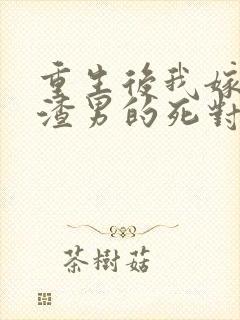 重生後我嫁
渣男的死對
茶樹菇